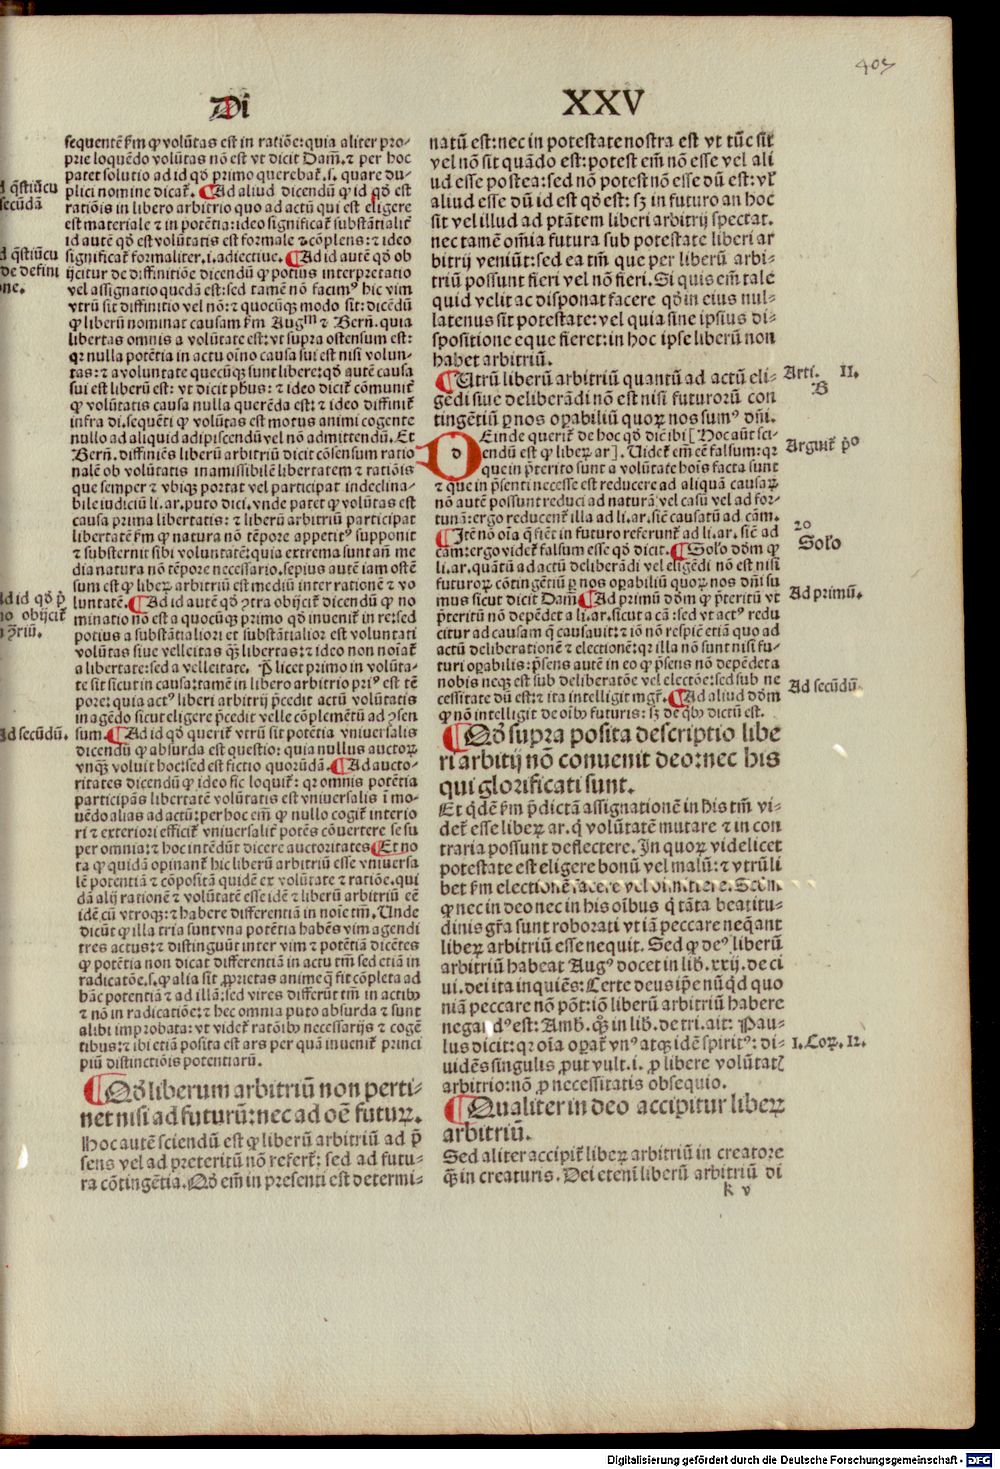 403
Di XXV
sequentē ẜm ꝙ volūtas est in ratiōe: quia aliter pro⸗
prie loquēdo volūtas nō est vt dicit Dam̄. ⁊ per hoc
patet solutio ad id qď primo querebat̄. s. quare du⸗
plici nomine dicat̄. ¶ Ad aliud dicendū ꝙ id qď est
ratiōis in libero arbitrio quo ad actū qui est eligere
est materiale ⁊ in potētia: ideo significat̄ substātialit̄
id autē qď est volūtatis est formale ⁊ cōplens: ⁊ ideo
significat̄ formaliter .i. adiectiue. ¶ Ad id autē qď ob
ijcitur de diffinitiōe dicendū ꝙ potius interpretatio
vel assignatio quedā est: sed tamē nō facimꝰ hic vim
vtrū sit diffinitio vel nō: ⁊ quocūqꝫ modo sit: dicēdū
ꝙ liberū nominat causam ẜm Augᵐ ⁊ Bern̄. quia
libertas omnis a volūtate est: vt supra ostensum est:
qꝛ nulla potētia in actu oīno causa sui est nisi volun⸗
tas: ⁊ a voluntate quecūqꝫ sunt libere: qď autē causa
sui est liberū est: vt dicit ph̄us: ⁊ ideo dicit̄ cōmunit̄
ꝙ volūtatis causa nulla querēda est: ⁊ ideo diffinit̄
infra di. sequēti ꝙ volūtas est motus animi cogente
nullo ad aliquid adipiscendū vel nō admittendū. Et
Bern̄. diffiniēs liberū arbitriū dicit cōsensum ratio
nalē ob volūtatis inamissibilē libertatem ⁊ ratiōis
que semper ⁊ vbiqꝫ portat vel participat indeclina⸗
bile iudiciū li. ar. puto dici. vnde patet ꝙ volūtas est
causa prima libertatis: ⁊ liberū arbitriū participat
libertatē ẜm ꝙ natura nō tēpore appetitꝰ supponit
⁊ substernit sibi voluntatē: quia extrema sunt an̄ me
dia natura nō tēpore necessario. sepius autē iam ostē
sum est ꝙ liberꝝ arbitriū est mediū inter rationē ⁊ vo
luntatē. ¶ Ad id autē qď ꝯtra obijcit̄ dicendū ꝙ no
minatio nō est a quocūqꝫ primo qď inuenit̄ in re: sed
potius a substātialiori et substātialior est voluntati
volūtas siue velleitas qꝫ libertas: ⁊ ideo non noīat̄
a libertate: sed a velleitate. Ꝑ licet primo in volūta⸗
te sit sicut in causa: tamē in libero arbitrio priꝰ est tē
pore: quia actꝰ liberi arbitrij p̄cedit actū volūtatis
in agēdo sicut eligere p̄cedit velle cōplementū ad ꝯsen
sum. ¶ Ad id qď querit̄ vtrū sit potētia vniuersalis
dicendū ꝙ absurda est questio: quia nullus auctoꝝ
vnqꝫ voluit hoc: sed est fictio quorūdā. ¶ Ad aucto⸗
ritates dicendū ꝙ ideo sic loquit̄: qꝛ omnis potētia
participās libertatē volūtatis est vniuersalis ī mo⸗
uēdo alias ad actū: per hoc em̄ ꝙ nullo cogit̄ interio
ri ⁊ exteriori efficit̄ vniuersalit̄ potēs cōuertere se su
per omnia: ⁊ hoc intēdūt dicere auctoritates ¶ Et no
ta ꝙ quidā opinant̄ hic liberū arbitriū esse vniuersa
lē potentiā ⁊ cōpositā quidē ex volūtate ⁊ ratiōe. qui
dā alij rationē ⁊ volūtatē esse idē ⁊ liberū arbitriū eē
idē cū vtroqꝫ: ⁊ habere differentiā in noīe tm̄. Unde
dicūt ꝙ illa tria sunt vna potētia habēs vim agendi
tres actus: ⁊ distinguūt inter vim ⁊ potētiā dicētes
ꝙ potētia non dicat differentiā in actu tm̄ sed etiā in
radicatōe. s. ꝙ alia sit ꝓprietas anime q̄ fit cōpleta ad
hāc potentiā ⁊ ad illā: sed vires differūt tm̄ in actibꝰ
⁊ nō in radicatiōe: ⁊ hec omnia puto absurda ⁊ sunt
alibi improbata: vt videt̄ ratōibꝰ necessarijs ⁊ cogē
tibus: ⁊ ibi etiā posita est ars per quā inuenit̄ princi
piū distinctiōis potentiarū.
¶ Qď liberum arbitriū non perti⸗
net nisi ad futurū: nec ad oē futuꝝ.
Hoc autē sciendū est ꝙ liberū arbitriū ad p̄
sens vel ad preteritū nō refert̄: sed ad futu⸗
ra cōtingētia. Qď em̄ in presenti est determi⸗
d q̄stiūcu
secūdā
d q̄stiūcu
de defini
one.
Ad id qď p̄
mo obijcit̄
ꝯ̄riū.
Ad secūdū.
natū est: nec in potestate nostra est vt tūc sit
vel nō sit quādo est: potest em̄ nō esse vel ali
ud esse postea: sed nō potest nō esse dū est: vl̄
aliud esse dū id est qď est: sꝫ in futuro an hoc
sit vel illud ad ptātem liberi arbitrij spectat.
nec tamē oīa futura sub potestate liberi ar
bitrij veniūt: sed ea tm̄ que per liberū arbi⸗
triū possunt fieri vel nō fieri. Si quis em̄ tale
quid velit ac disponat facere qď in eius nul⸗
latenus sit potestate: vel quia sine ipsius di⸗
spositione eque fieret: in hoc ipse liberū non
habet arbitriū.
¶ Utrū liberū arbitriū quantū ad actū eli⸗
gēdi siue deliberādi nō est nisi futurorū con
tingētiū ꝑ nos oꝑabiliū quoꝝ nos sumꝰ dn̄i.
DEinde querit̄ de hoc qď diē ibi [Hoc aūt sci⸗
endū est ꝙ liberꝝ ar]. Uidet̄ em̄ eē falsum: qꝛ
que in p̄terito sunt a volūtate hoīs facta sunt
⁊ que in p̄senti necesse est reducere ad aliquā causaꝝ
nō autē possunt reduci ad naturā vel casū vel ad for⸗
tunā: ergo reducent̄ illa ad li. ar. sic̄ causatū ad cām.
¶ Itē nō oīa q̄ fiēt in futuro referunt̄ ad li. ar. sic̄ ad
cām: ergo videt̄ falsum esse qď dicit. ¶ Solō dd̄m ꝙ
li. ar. quātū ad actū deliberādi vel eligēdi nō est nisi
futuroꝝ cōtingētiū ꝑ nos oꝑabiliū quoꝝ nos dn̄i su
mus sicut dicit Dam̄ ¶ Ad primū dd̄m ꝙ p̄teritū vt
p̄teritū nō depēdet a li. ar. sicut a cā: sed vt actꝰ redu
citur ad causam q̄ causauit: ⁊ iō nō respic̄ etiā quo ad
actū deliberationē ⁊ electionē: qꝛ illa nō sunt nisi fu⸗
turi oꝑabilis: p̄sens autē in eo ꝙ p̄sens nō depēdet a
nobis neqꝫ est sub deliberatōe vel electōe: sed sub ne
cessitate dū est: ⁊ ita intelligit mgr̄. ¶ Ad aliud dd̄m
ꝙ nō intelligit de oībꝰ futuris: sꝫ de qbꝰ dictū est.
¶ Qď supra posita descriptio libe
ri arbitij nō conuenit deo: nec his
qui glorificati sunt.
Et q̇dē ẜm p̄dictā assignationē in his tm̄ vi⸗
det̄ esse liberꝝ ar. q̇ volūtatē mutare ⁊ in con
traria possunt deflectere. In quoꝝ videlicet
potestate est eligere bonū vel malū: ⁊ vtrūli
bet ẜm electionē facere vel dimittere. Scd̄m
ꝙ nec in deo nec in his oībus q̇ tāta beatitu⸗
dinis gr̄a sunt roborati vt iā peccare neqāant
liberꝝ arbitriū esse nequit. Sed ꝙ deꝰ liberū
arbitriū habeat Augꝰ docet in lib̄. xxij. de ci
ui. dei ita inquiēs: Certe deus ip̄e nūqd quo
niā peccare nō pōt: iō liberū arbitriū habere
negandꝰ est: Amb̄. qꝫ in lib̄. de tri. ait: Pau⸗
lus dicit: qꝛ oīa oꝑat̄ vnꝰ atqꝫ idē spiritꝰ: di⸗
uidēs singulis ꝓut vult .i. ꝓ libere volūtatꝭ
arbitrio: nō ꝓ necessitatis obsequio.
¶ Qualiter in deo accipitur liberꝝ
arbitriū.
Sed aliter accipit̄ liberꝝ arbitriū in creatore
qꝫ in creaturis. Dei etenī liberū arbitriū di
k v
Arti. II.
B
Arguit̄ pº
2º
Solō
Ad primū.
Ad secūdū.
1. Coꝝ. 12.
Digitalisierung gefördert durch die Deutsche Forschungsgemeinschaft - DFG